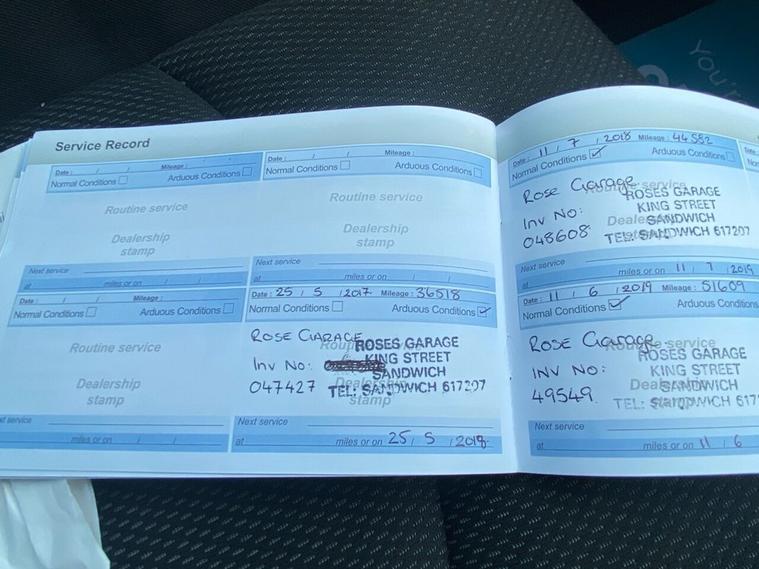 Service Record
Date : / / Mileage :
Normal Conditions Arduous Conditions
Routine service
Dealership
stamp
Next service
at miles or on / /
Date : / / Mileage :
Normal Conditions Arduous Conditions
Routine service
Dealership
stamp
Next service
at miles or on / /
Date : / / Mileage :
Normal Conditions Arduous Conditions
Routine service
Dealership
stamp
Next service
at miles or on / /
Date : 25 / 5 / 2017 Mileage : 36518
Normal Conditions Arduous Conditions ✓
ROSE GARAGE
Inv No:
047427
ROSES GARAGE
KING STREET
SANDWICH
TEL: SANDWICH 617207
stamp
Next service
at miles or on 25 / 5 / 2018
Date : 11 / 7 / 2018 Mileage : 44552
Normal Conditions ✓ Arduous Conditions
Rose Garage
Inv No:
048608
Routine service
ROSES GARAGE
KING STREET
SANDWICH
TEL: SANDWICH 617207
Next service
at miles or on 11 / 7 / 2019
Date : 11 / 6 / 2019 Mileage : 51609
Normal Conditions ✓ Arduous Conditions
Rose Garage
INV No:
49549
Routine service
ROSES GARAGE
KING STREET
SANDWICH
TEL: SANDWICH 6172
stamp
Next service
at miles or on 11 / 6
You'r